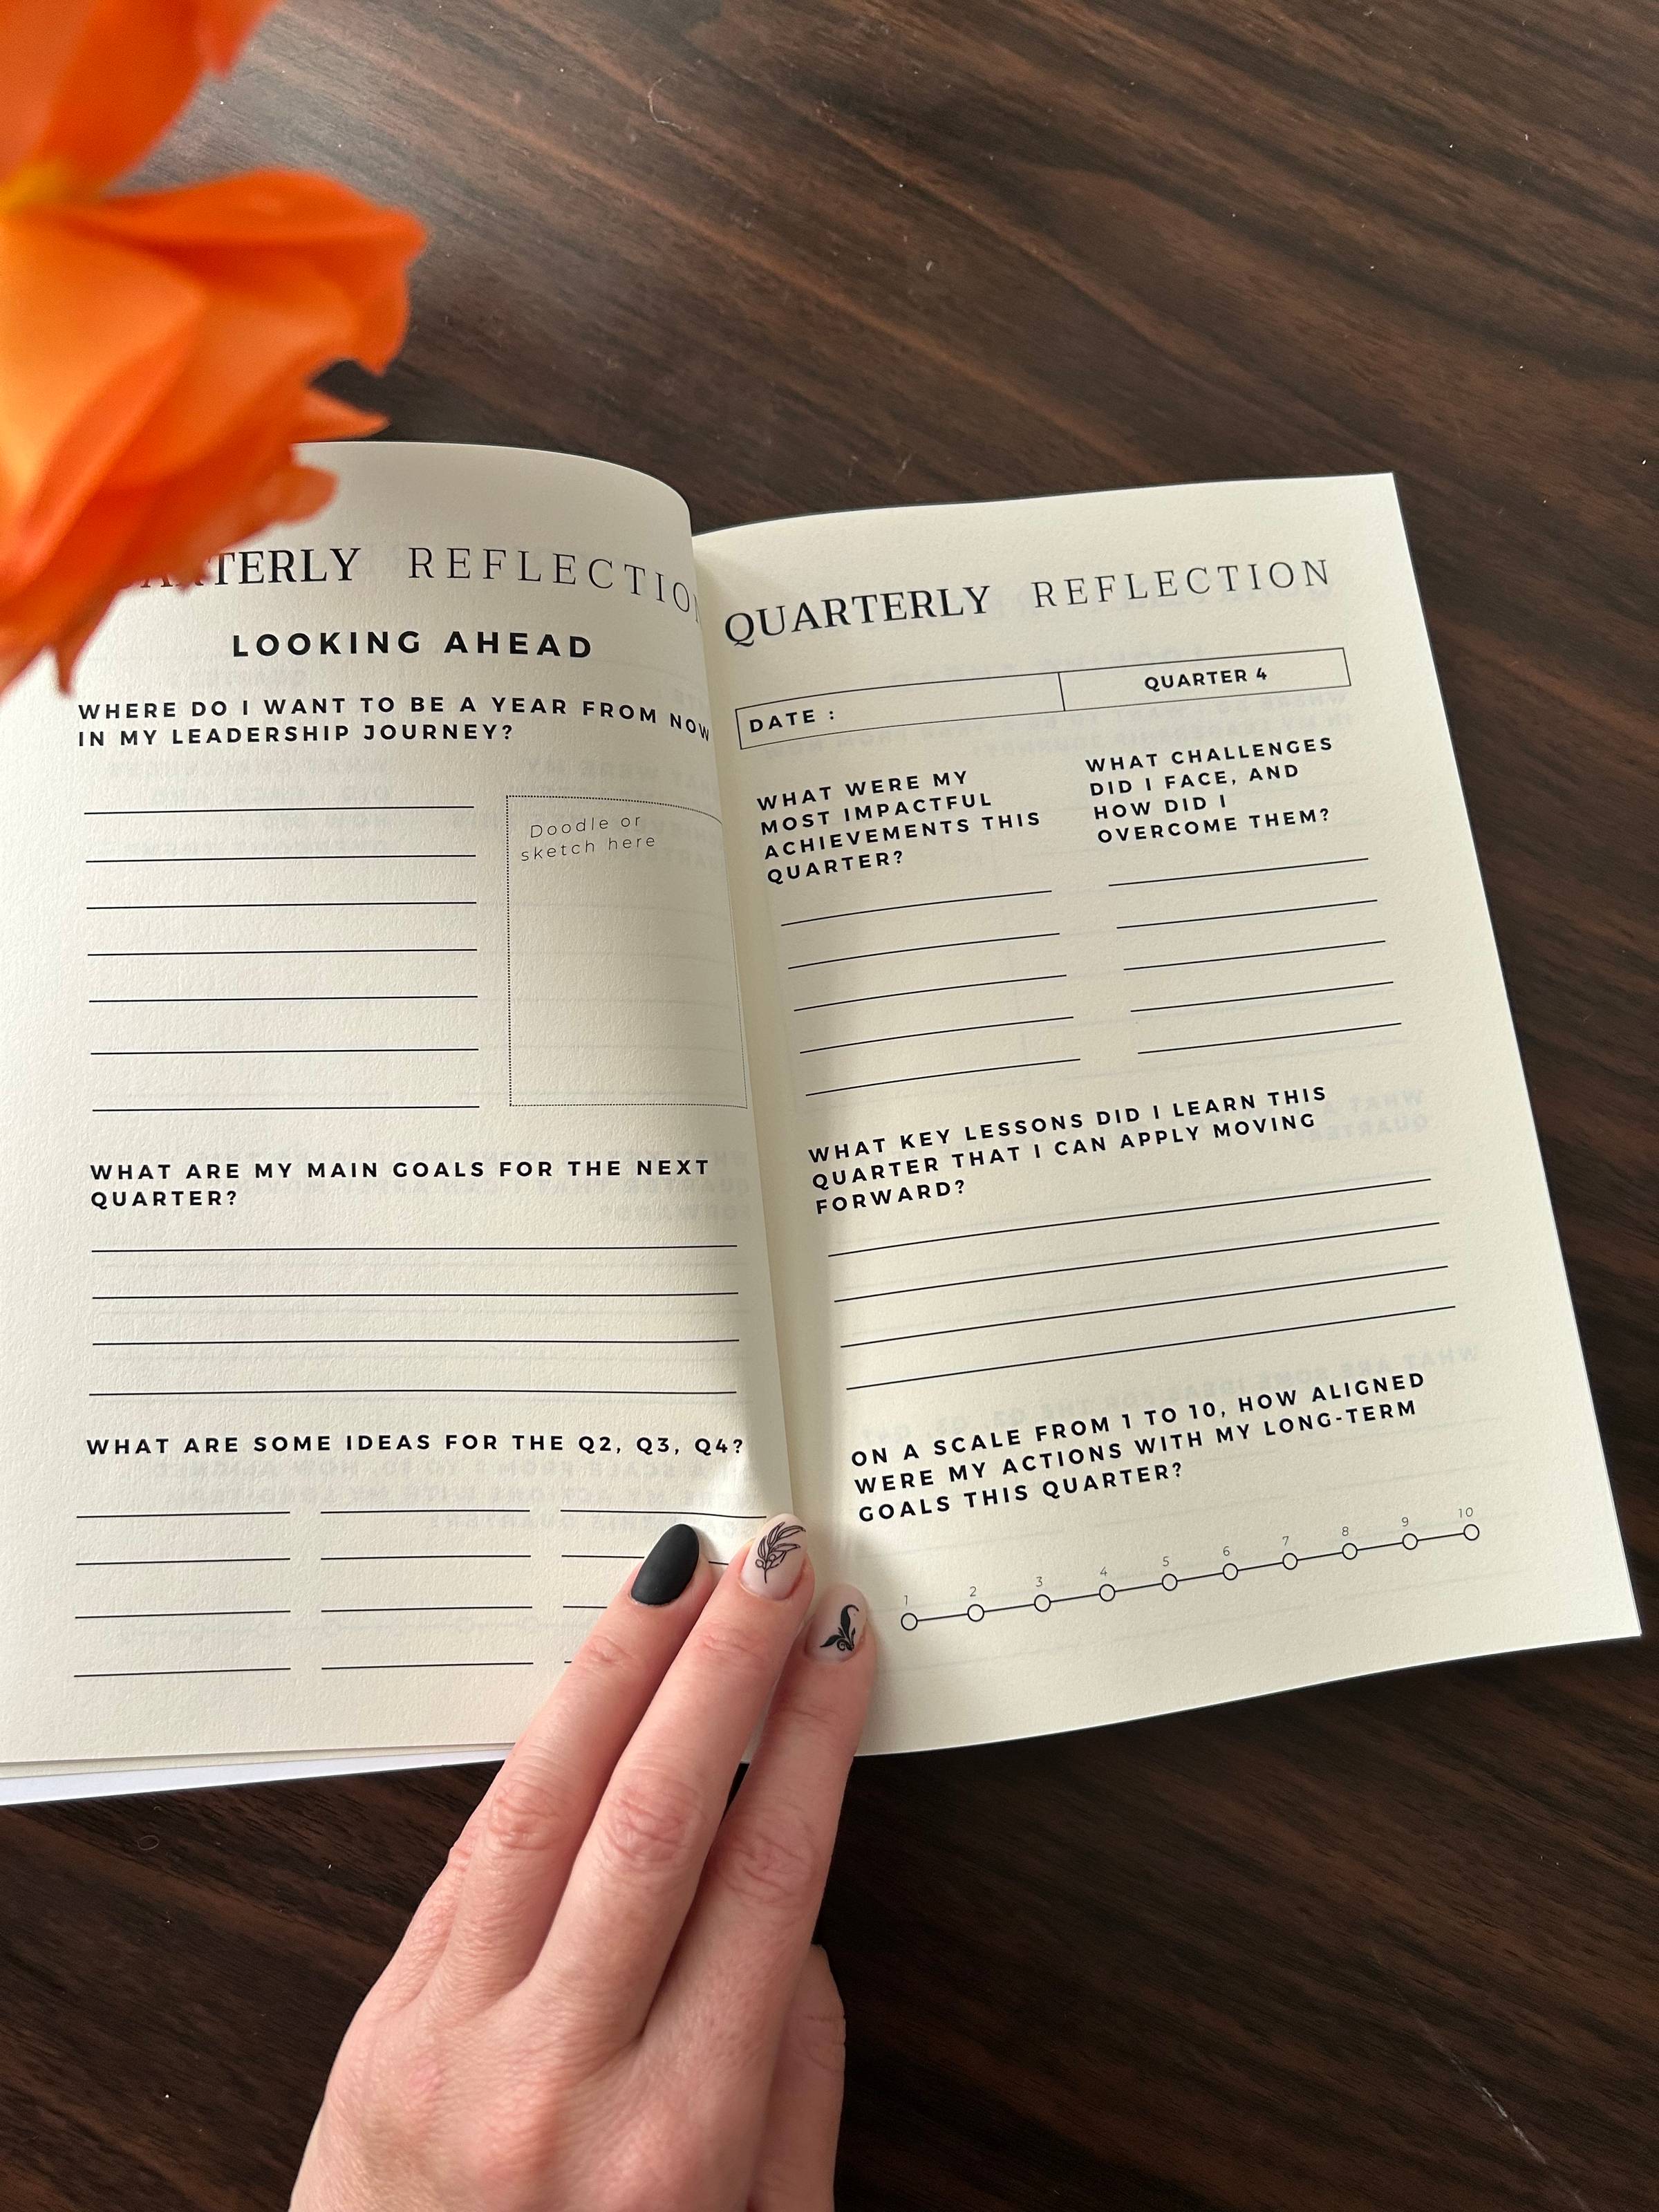 QUARTERLY REFLECTION
LOOKING AHEAD
WHERE DO I WANT TO BE A YEAR FROM NOW
IN MY LEADERSHIP JOURNEY?
Doodle or
sketch here
WHAT ARE MY MAIN GOALS FOR THE NEXT
QUARTER?
WHAT ARE SOME IDEAS FOR THE Q2, Q3, Q4?
QUARTERLY REFLECTION
DATE :
QUARTER 4
WHAT WERE MY
MOST IMPACTFUL
ACHIEVEMENTS THIS
QUARTER?
WHAT CHALLENGES
DID I FACE, AND
HOW DID I
OVERCOME THEM?
WHAT KEY LESSONS DID I LEARN THIS
QUARTER THAT I CAN APPLY MOVING
FORWARD?
ON A SCALE FROM 1 TO 10, HOW ALIGNED
WERE MY ACTIONS WITH MY LONG-TERM
GOALS THIS QUARTER?
1 2 3 4 5 6 7 8 9 10